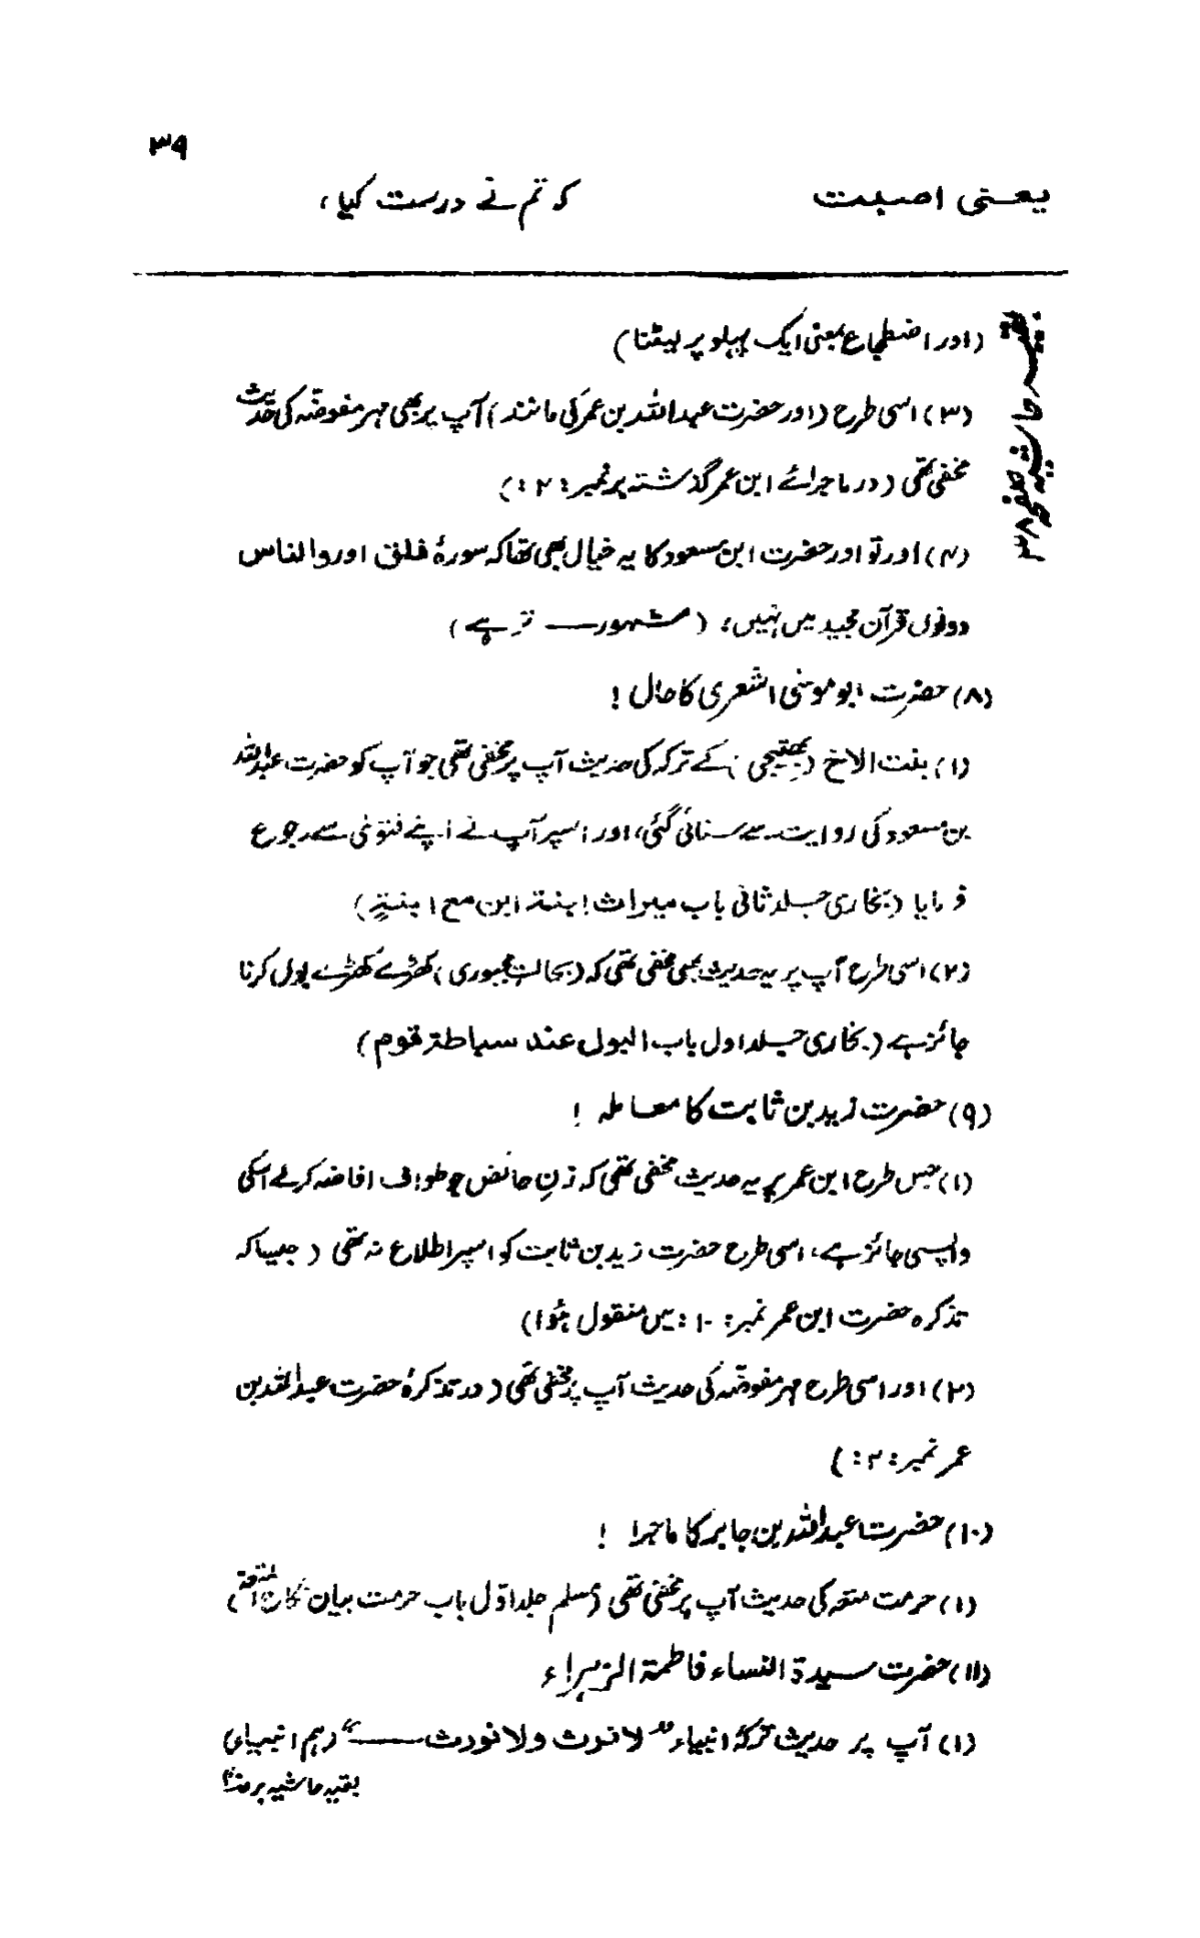 ۳۹
یعنی اصبت کہ تم نے درست کیا،
بقیہ حاشیہ صفحہ ۳۸
(اور اضطجاع بمعنی ایک پہلو پر لیٹنا)
(۳) اسی طرح (اور حضرت عبداللہ بن عمر کی مانند) آپ پر بھی مہر مفوضہ کی حدیث
مخفی تھی (در ماجرائے ابن عمر گذشتہ بر نمبر: ۲:)
(۴) اور تو اور حضرت ابن مسعود کا یہ خیال بھی تھا کہ سورۂ فلق اور والناس
دونوں قرآن مجید میں نہیں، (مشہور تر ہے)
(۸) حضرت ابو موسٰی اشعری کا حال !
(۱) بنت الاخ (بھتیجی) کے ترکہ کی حدیث آپ پر مخفی تھی جو آپ کو حضرت عبداللہ
بن مسعود کی روایت سے سنائی گئی، اور اسپر آپ نے اپنے فتوٰی سے رجوع
فرمایا (بخاری جلد ثانی باب میراث ابنۃ ابن مع ابنۃٍ)
(۲) اسی طرح آپ پر یہ حدیث بھی مخفی تھی کہ (بحالت مجبوری) کھڑے کھڑے بول کرنا
جائز ہے (بخاری جلد اول باب البول عند سباطۃ قوم)
(۹) حضرت زید بن ثابت کا معاملہ !
(۱) جس طرح ابن عمر پر یہ حدیث مخفی تھی کہ زنِ حائض جو طواف افاضہ کرلے اسکی
واپسی جائز ہے، اسی طرح حضرت زید بن ثابت کو اسپر اطلاع نہ تھی (جیسا کہ
تذکرہ حضرت ابن عمر نمبر: ۱۰: میں منقول ہُوا)
(۲) اور اسی طرح مہر مفوضہ کی حدیث آپ پر مخفی تھی (در تذکرۂ حضرت عبداللہ بن
عمر نمبر: ۲:)
(۱۰) حضرت عبداللہ بن جابر کا ماجرا !
(۱) حرمت متعہ کی حدیث آپ پر مخفی تھی (مسلم جلد اوّل باب حرمت بیان نکاح المتعۃ)
(۱۱) حضرت سیدۃ النساء فاطمۃ الزہراء
(۱) آپ پر حدیث ترکۂ انبیاء "لا نرث ولا نورث ــــ" (ہم انبیاء کی
بقیہ حاشیہ بر